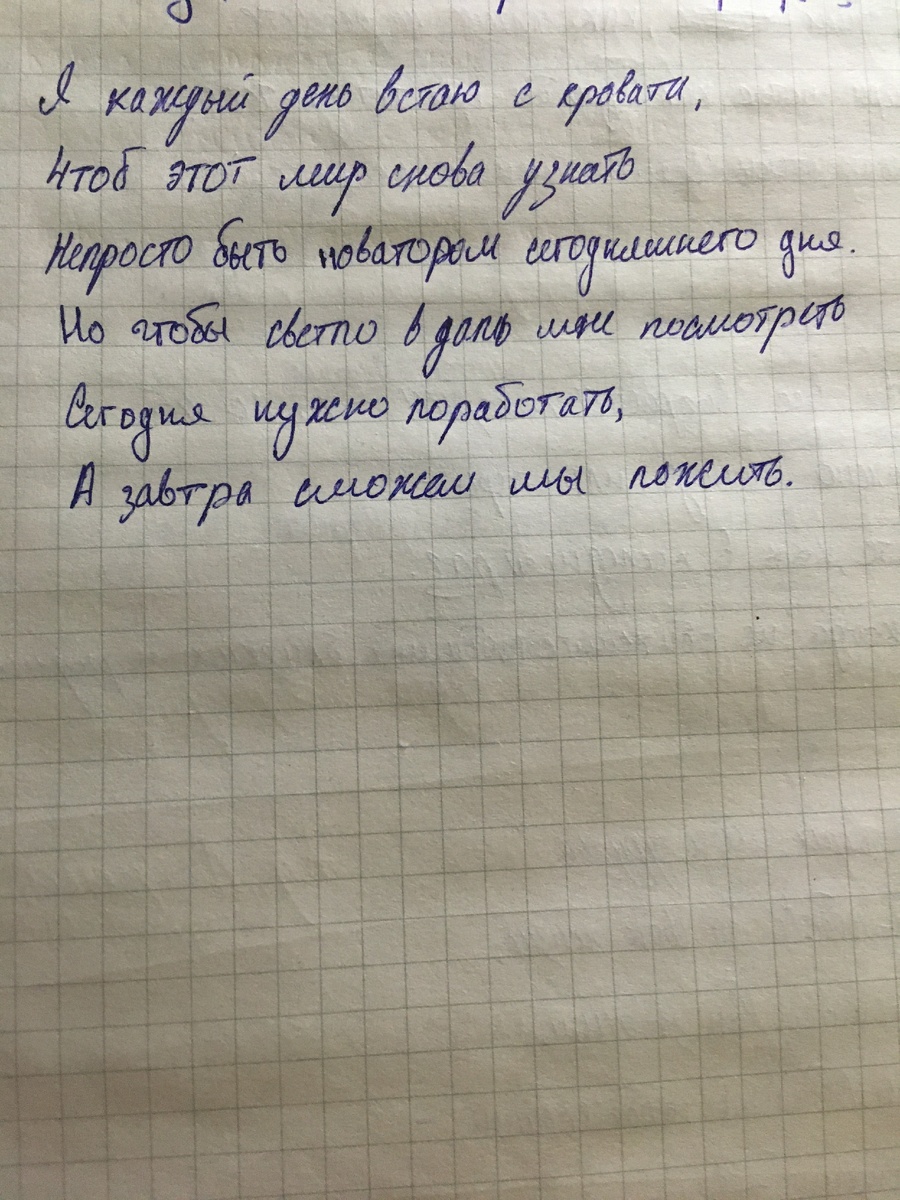 Я каждый день встаю с кровати,
Чтоб этот мир снова узнать
Непросто быть новатором сегодняшнего дня.
Но чтобы светло в даль мне посмотреть
Сегодня нужно поработать,
А завтра сможем мы пожить.